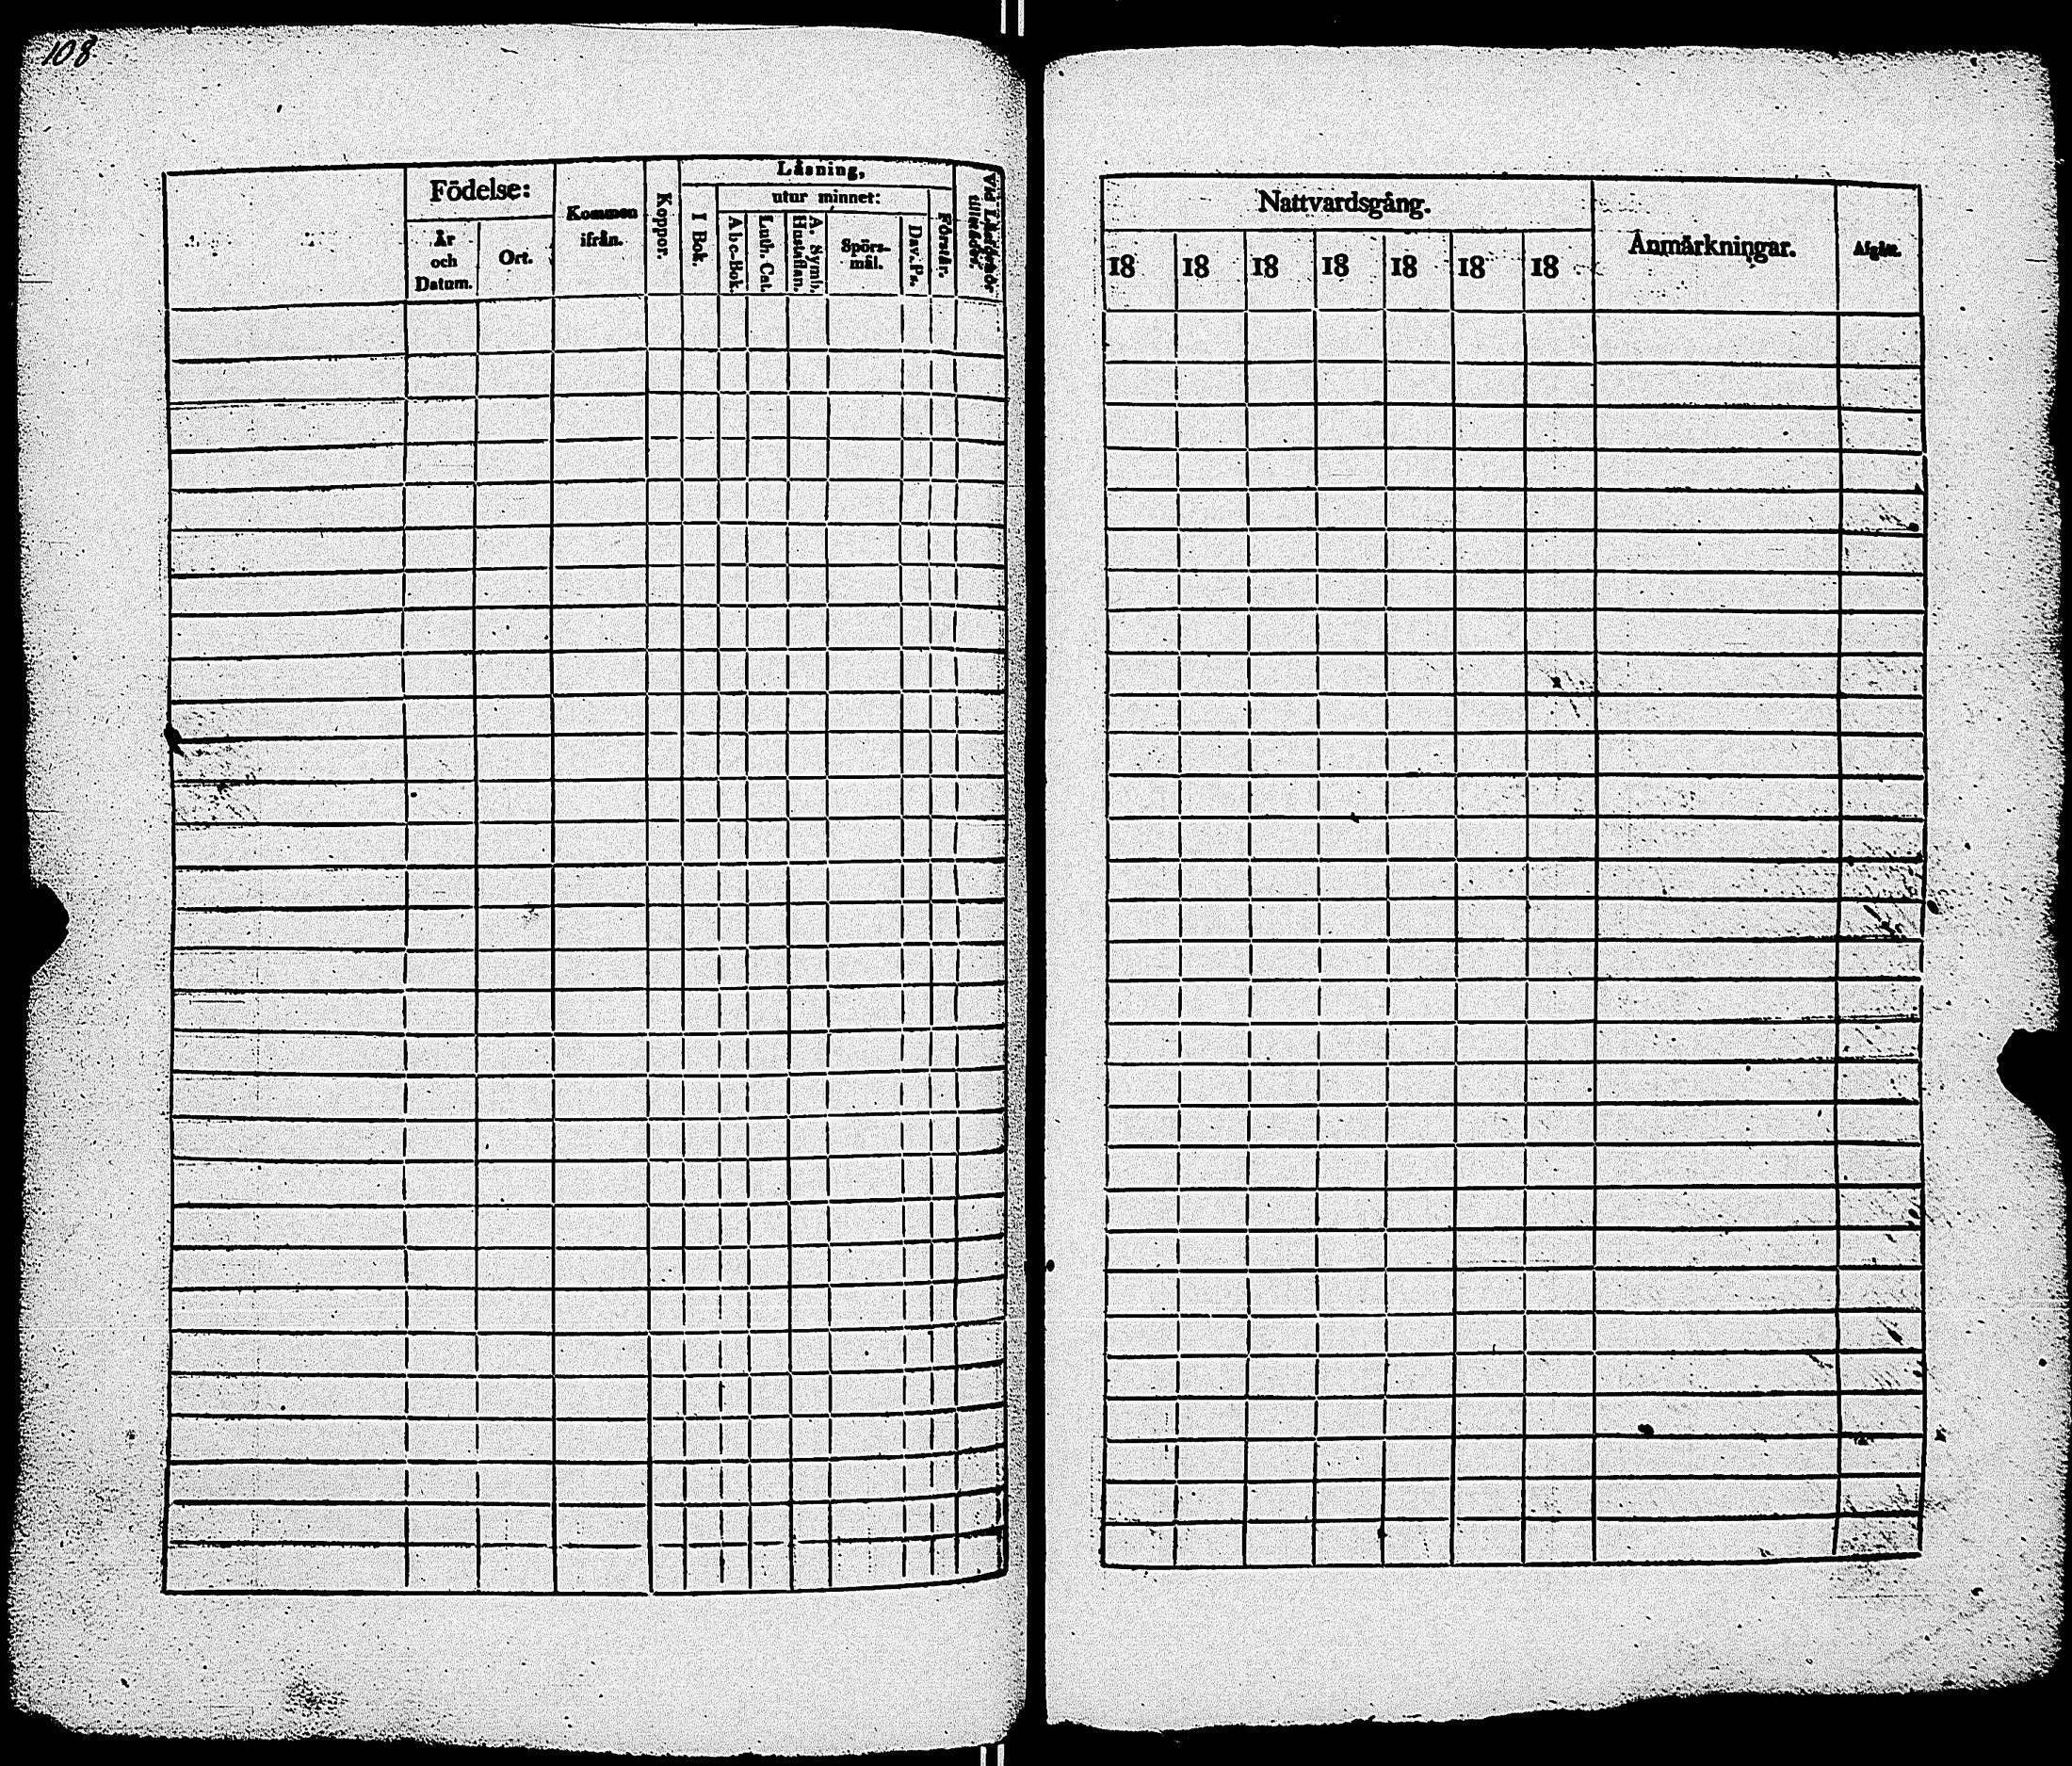 108
Födelse:
År
och
Datum.
Ort.
Kommen
ifrån.
Koppor.
Läsning,
utur minnet:
I Bok.
Abc-Bok.
Luth. Cat.
A. Symb.
Hustaflan.
Spörs-
mål.
Dav. Ps.
Förstår.
Vid Läsförhör
tillstädes.
Nattvardsgång.
18 18 18 18 18 18 18
Anmärkningar.
Afgått.